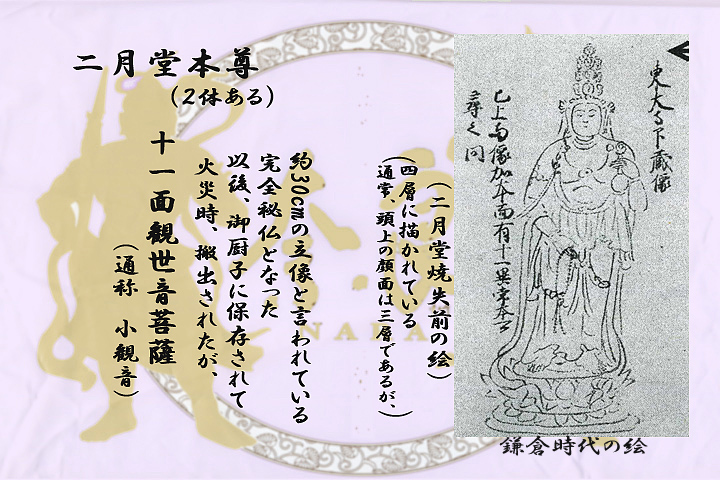 二月堂本尊
(2体ある)
十一面観世音菩薩
(通称 小観音)
火災時、搬出されたが、
以後、御厨子に保存されて
完全秘仏となった
約30cmの立像と言われている
(二月堂焼失前の絵)
(四層に描かれている
通常、頭上の顔面は三層であるが、)
東大寺下蔵像
已上両像加本面有十一異常本云
尋之同
鎌倉時代の絵
NARA